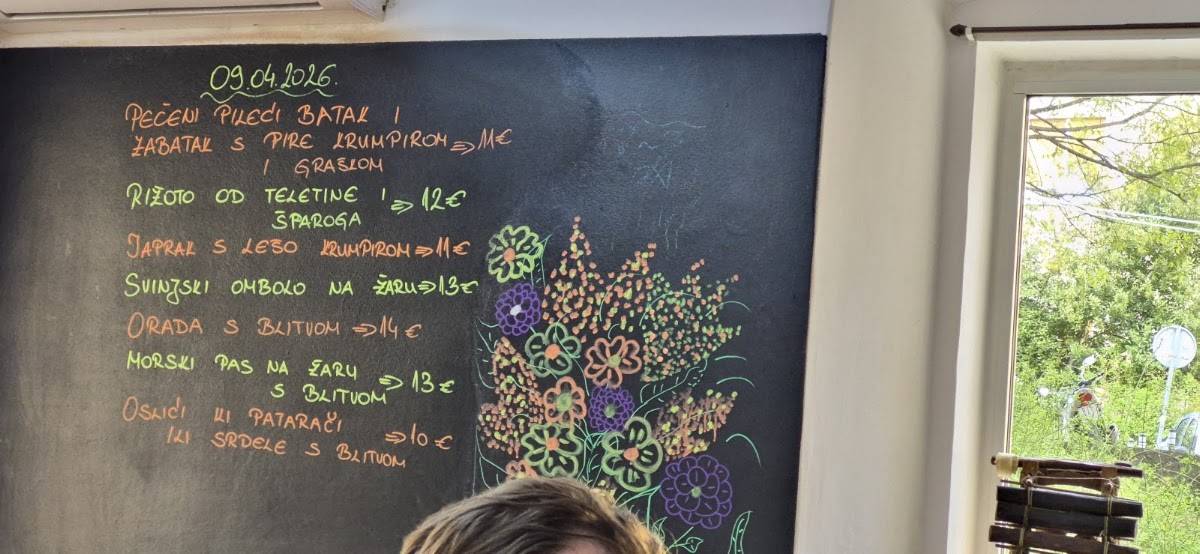 09.04.2026.
PEČENI PILEĆI BATAK I
ZABATAK S PIRE KRUMPIROM => 11€
I GRAŠKOM
RIŽOTO OD TELETINE I => 12€
ŠPAROGA
JAPRAK S LEŠO KRUMPIROM => 11€
SVINJSKI OMBOLO NA ŽARU => 13€
ORADA S BLITVOM => 14€
MORSKI PAS NA ŽARU => 13€
S BLITVOM
OSLIĆI ILI PATARAČI => 10€
ILI SRDELE S BLITVOM